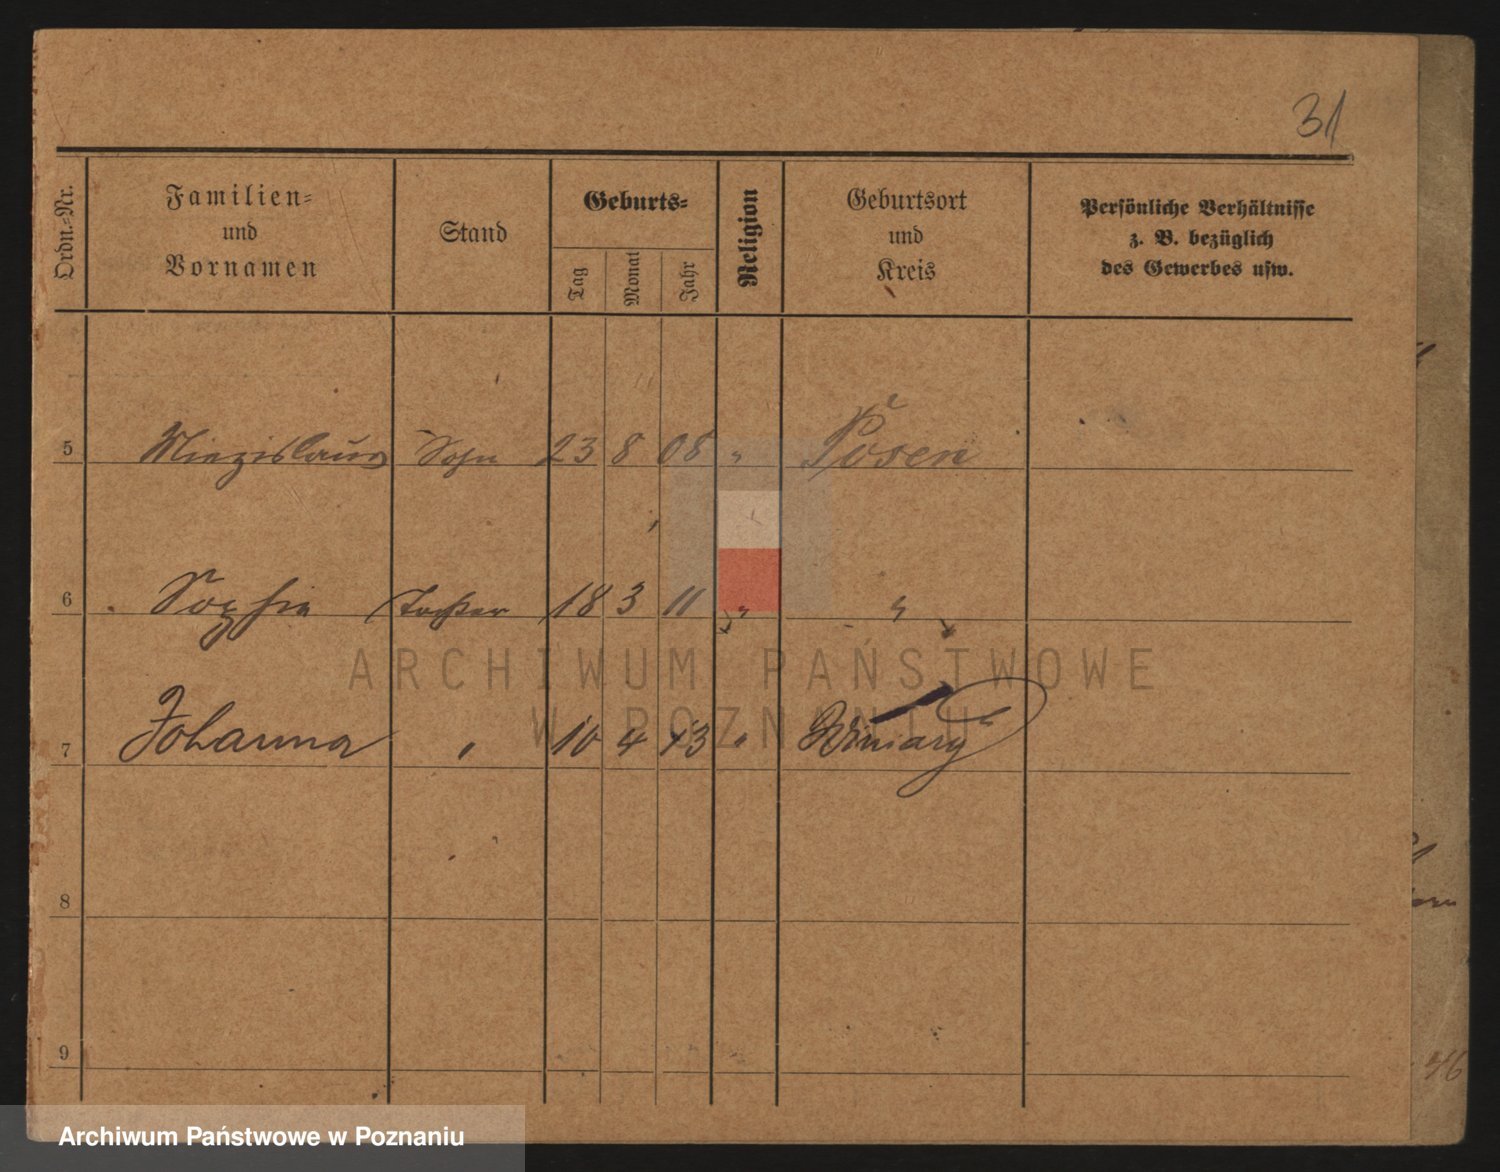 31
Ordn.-Nr.
Familien-
und
Vornamen
Stand
Geburts-
Tag
Monat
Jahr
Religion
Geburtsort
und
Kreis
Persönliche Verhältnisse
z. B. bezüglich
des Gewerbes usw.
5 Miezislaus Sohn 23 8 08 " Posen
6 Sophie Tochter 18 3 11 " "
ARCHIWUM PAŃSTWOWE
W POZNANIU
7 Johanna " 10 4 13 " Winiary
8
9
46
Archiwum Państwowe w Poznaniu